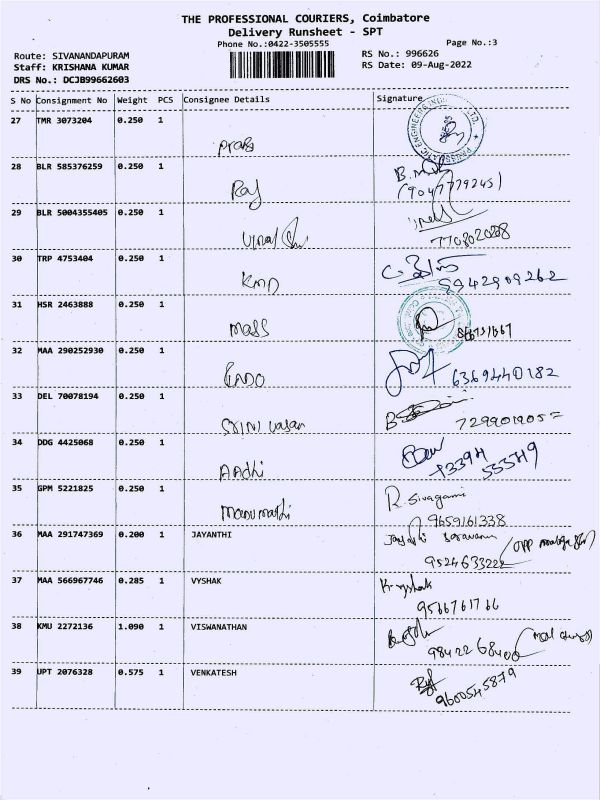 THE PROFESSIONAL COURIERS, Coimbatore
Delivery Runsheet - SPT
Phone No.:0422-3505555
Page No.:3
Route: SIVANANDAPURAM
RS No.: 996626
Staff: KRISHANA KUMAR
RS Date: 09-Aug-2022
DRS No.: DCJB99662603
S No Consignment No Weight PCS Consignee Details Signature
27 TMR 3073204 0.250 1
28 BLR 585376259 0.250 1 Raj
29 BLR 5004355405 0.250 1
770802088
30 TRP 4753404 0.250 1 KMD
9942909262
31 HSR 2463888 0.250 1 Mass
32 MAA 290252930 0.250 1
6369440182
33 DEL 70078194 0.250 1 SRINI vasan
34 DDG 4425068 0.250 1 AAdhi
35 GPM 5221825 0.250 1
R. Sivagami
9659161338
36 MAA 291747369 0.200 1 JAYANTHI
9524633222
37 MAA 566967746 0.285 1 VYSHAK
Kr vyshak
9566761766
38 KMU 2272136 1.090 1 VISWANATHAN
9842268400
39 UPT 2076328 0.575 1 VENKATESH
9600545879